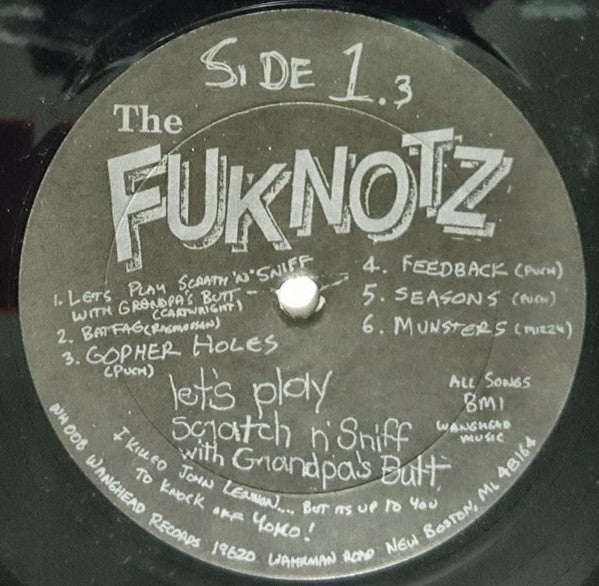 SIDE 1.3
The
FUKNOTZ
1. LETS PLAY SCRATH 'N' SNIFF
WITH GRANDPA'S BUTT--
(CARTWRIGHT)
2. BATFAG (RASMUSSEN)
3. GOPHER HOLES
(PUCH)
4. FEEDBACK (PUCH)
5. SEASONS (PUCH)
6. MUNSTERS (MIZZY)
let's play
scratch n' Sniff
with Grandpa's Butt
ALL SONGS
BMI
WANGHEAD
MUSIC
I KILLED JOHN LENNON.... BUT ITS UP TO YOU
TO KNOCK OFF YOKO!
WH008 WANGHEAD RECORDS 19620 WAHRMAN ROAD NEW BOSTON, MI. 48164